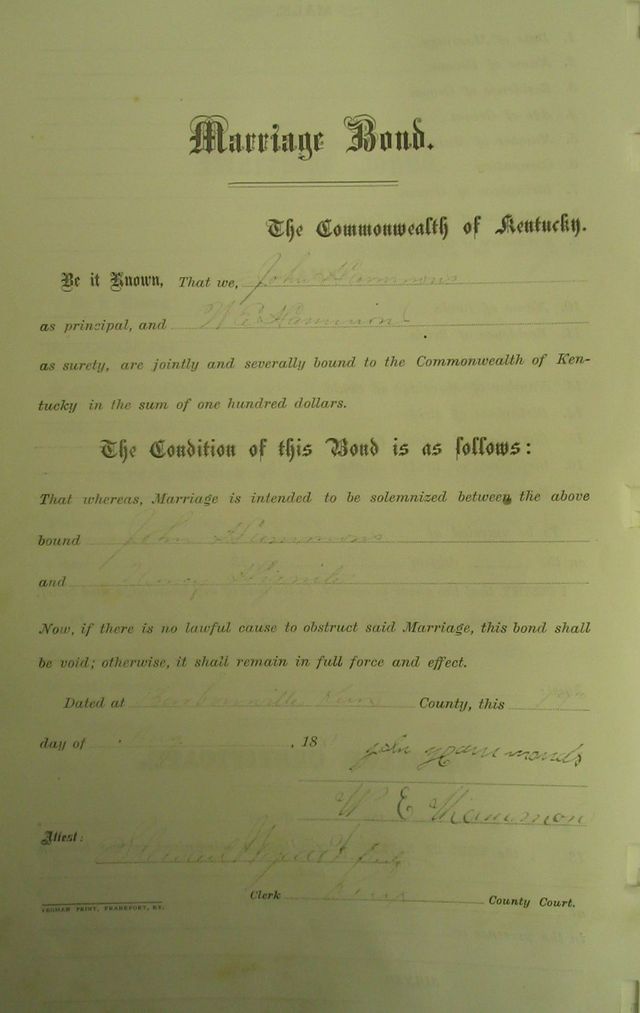 Marriage Bond.
The Commonwealth of Kentucky.
Be it Known, That we, John Hammons
as principal, and W E Hammons
as surety, are jointly and severally bound to the Commonwealth of Ken-
tucky in the sum of one hundred dollars.
The Condition of this Bond is as follows:
That whereas, Marriage is intended to be solemnized between the above
bound John Hammons
and Nancy
Now, if there is no lawful cause to obstruct said Marriage, this bond shall
be void; otherwise, it shall remain in full force and effect.
Dated at Barbourville Knox County, this
day of , 18 John Hammonds
W. E. Hammon
Attest:
Clerk Knox County Court.
YEOMAN PRINT, FRANKFORT, KY.